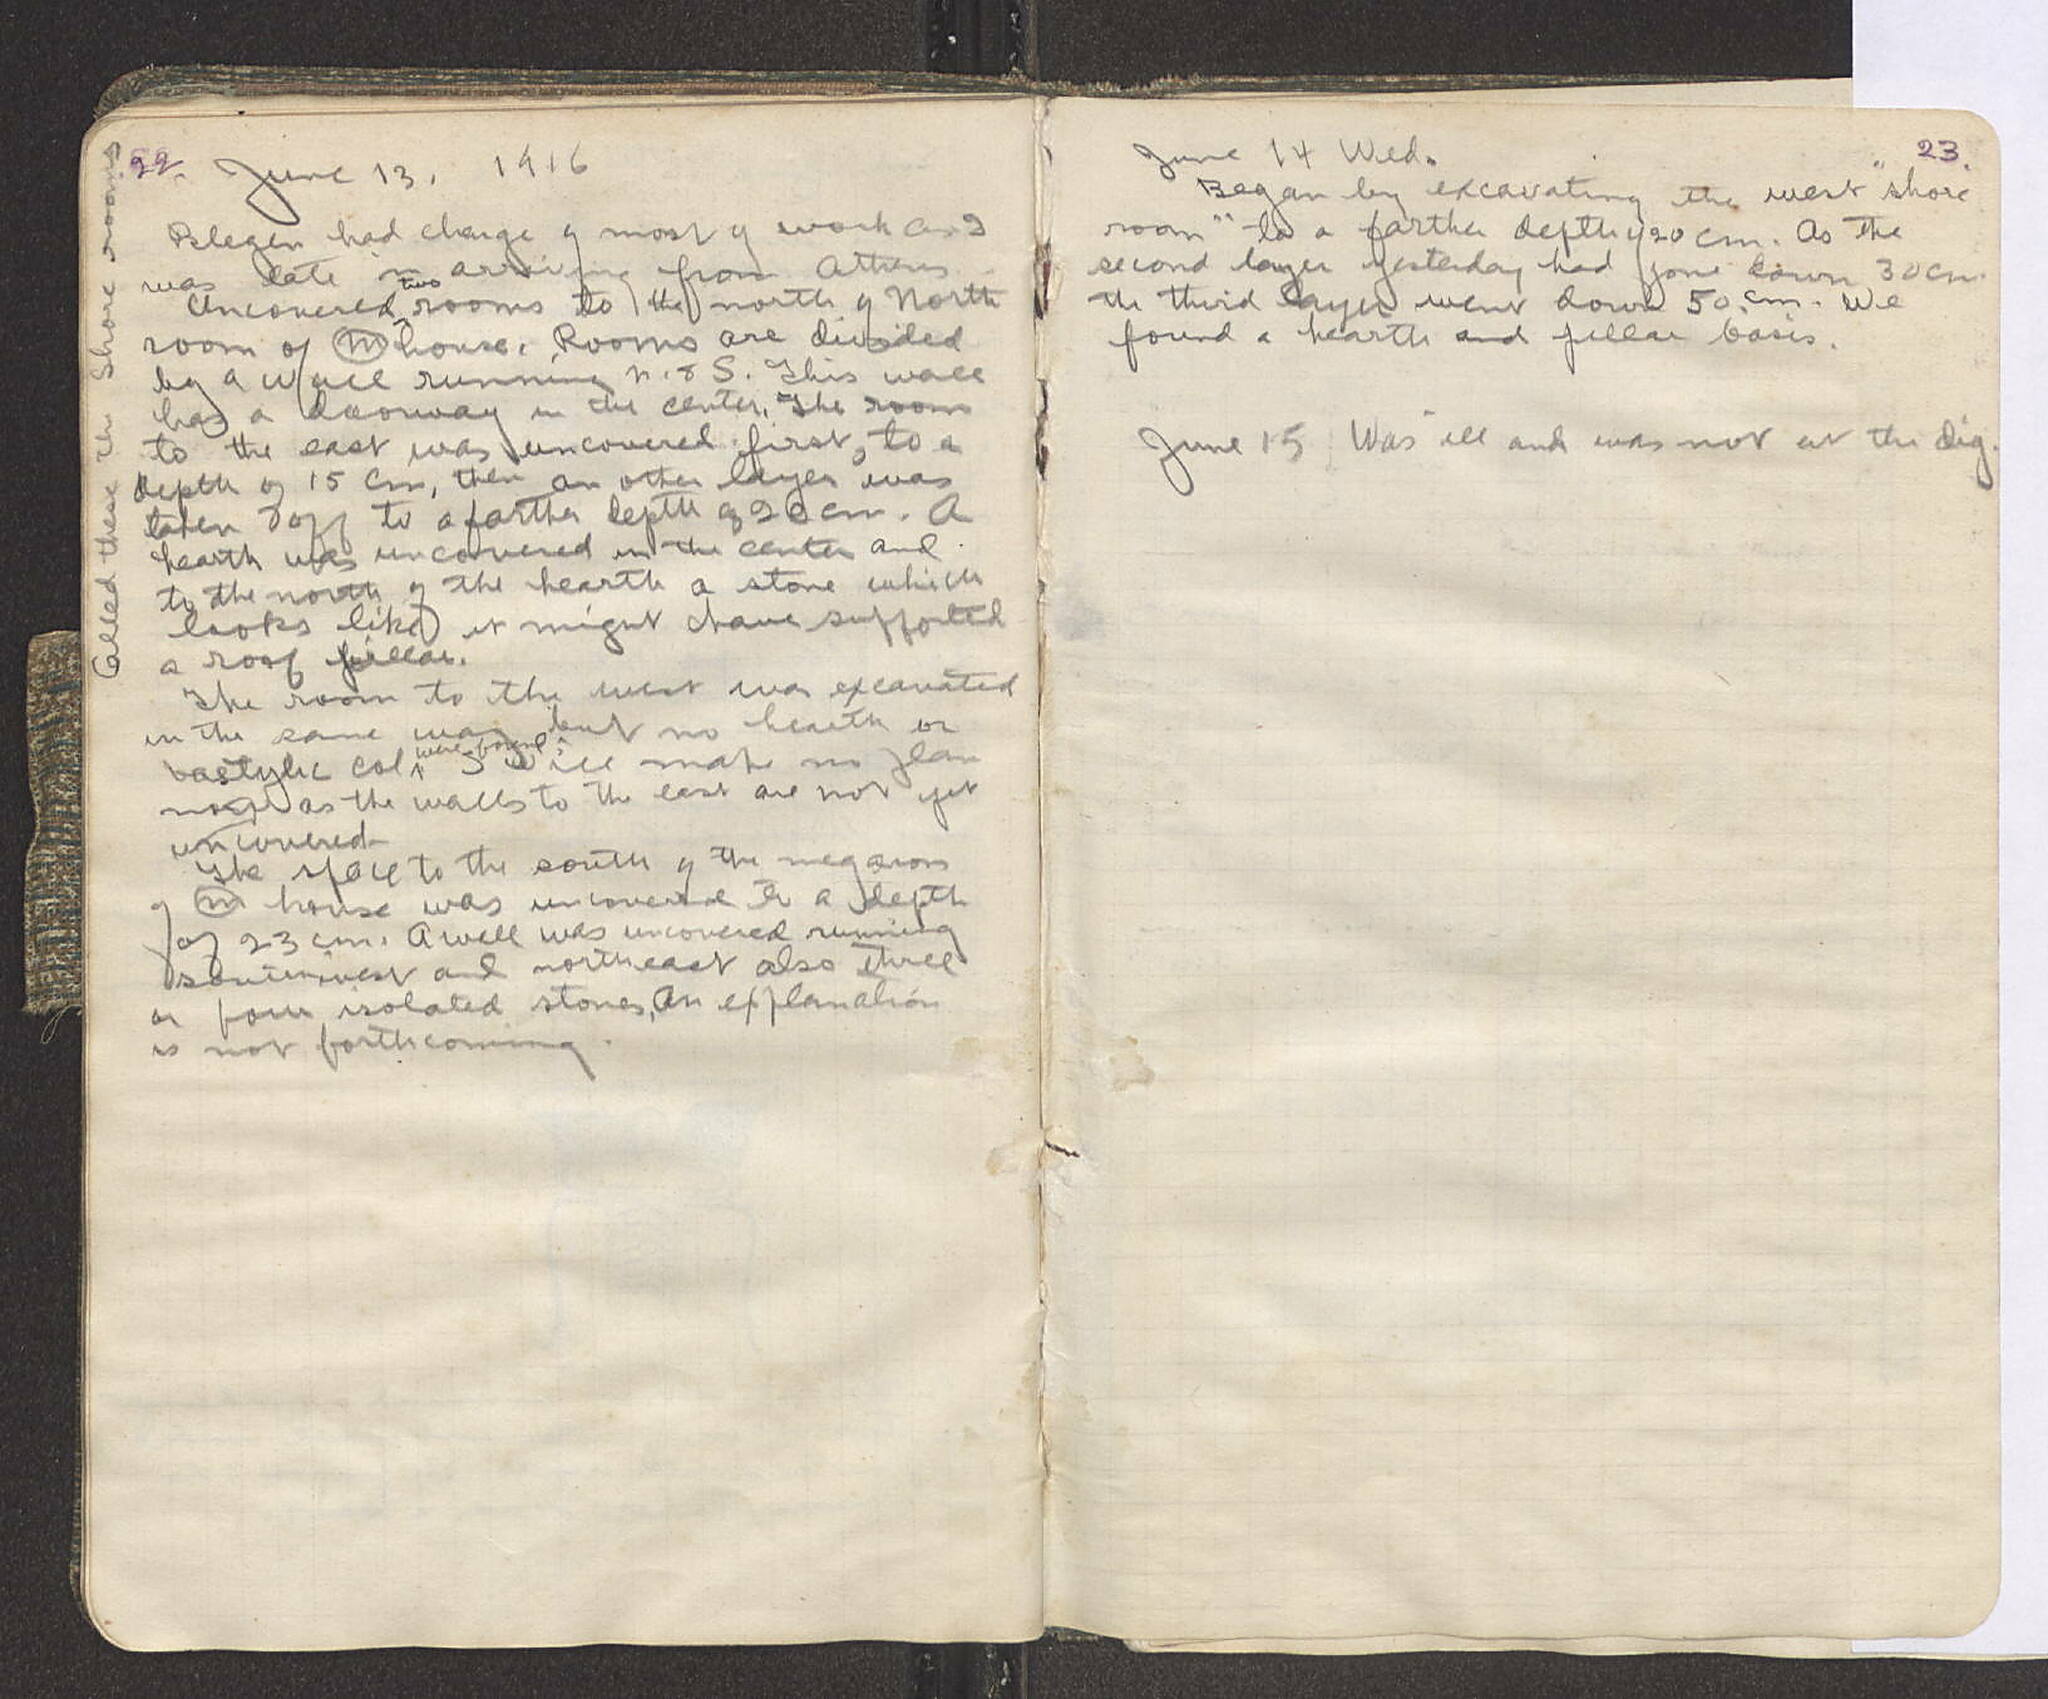 22.
June 13, 1916
Blegen had charge of most of work and I
was late in arriving from Athens.
Uncovered two rooms to the north of North
room of M house. Rooms are divided
by a wall running N. & S. This wall
has a doorway in the center. The room
to the east was uncovered first, to a
depth of 15 cm, then an other layer was
taken off to a farther depth of 20 cm. A
hearth was uncovered in the center and
to the north of the hearth a stone which
looks like it might have supported
a roof pillar.
The room to the west was excavated
in the same way but no hearth or
bastylic col. were found. I will make no plan
now as the walls to the east are not yet
uncovered
The space to the south of the megaron
of M house was uncovered to a depth
of 23 cm. A wall was uncovered running
southwest and northeast also three
or four isolated stones, An explanation
is not forthcoming.
Called these the Shore rooms
23.
June 14 Wed.
Began by excavating the west "shore
room" to a farther depth of 20 cm. As the
second layer yesterday had gone down 30 cm.
the third layer went down 50 cm. We
found a hearth and pillar basis.
June 15 Was ill and was not at the dig.